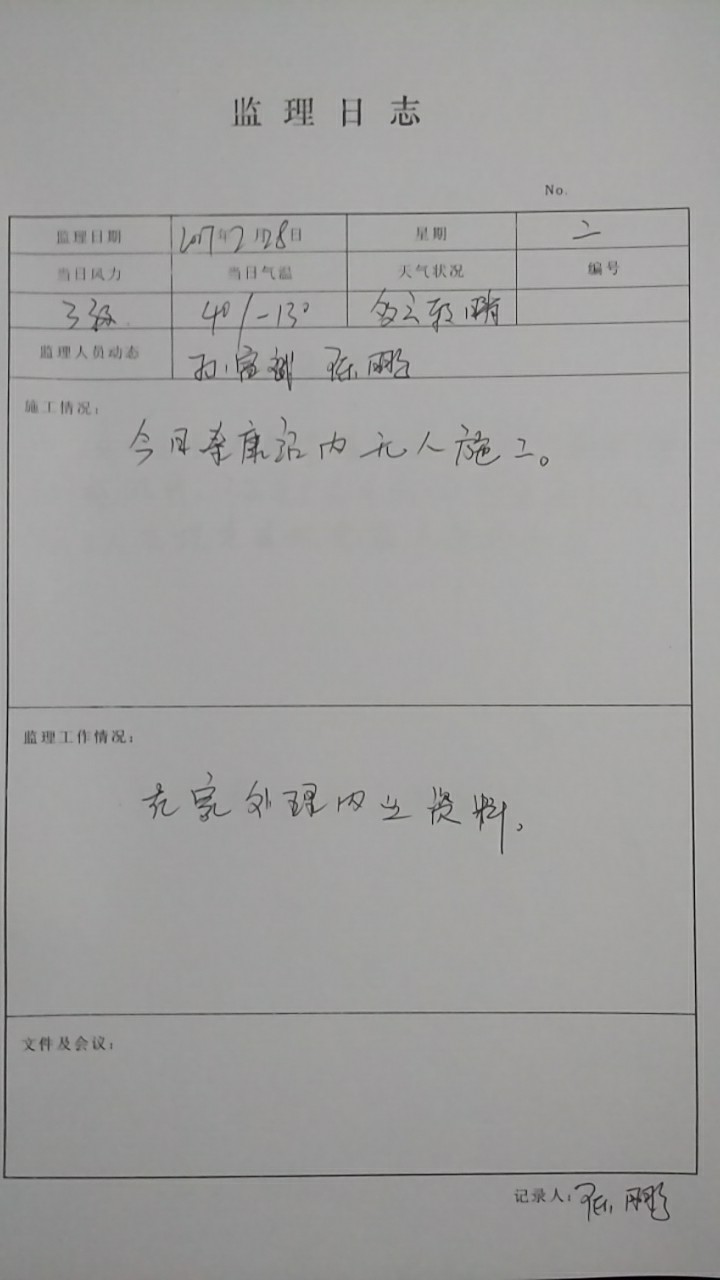 监理日志
No.
监理日期 2017年2月28日 星期 二
当日风力 当日气温 天气状况 编号
3级 4°/-13° 多云转晴
监理人员动态 陈鹏
施工情况：
今日泰康站内无人施工。
监理工作情况：
在家处理内业资料。
文件及会议：
记录人：陈鹏